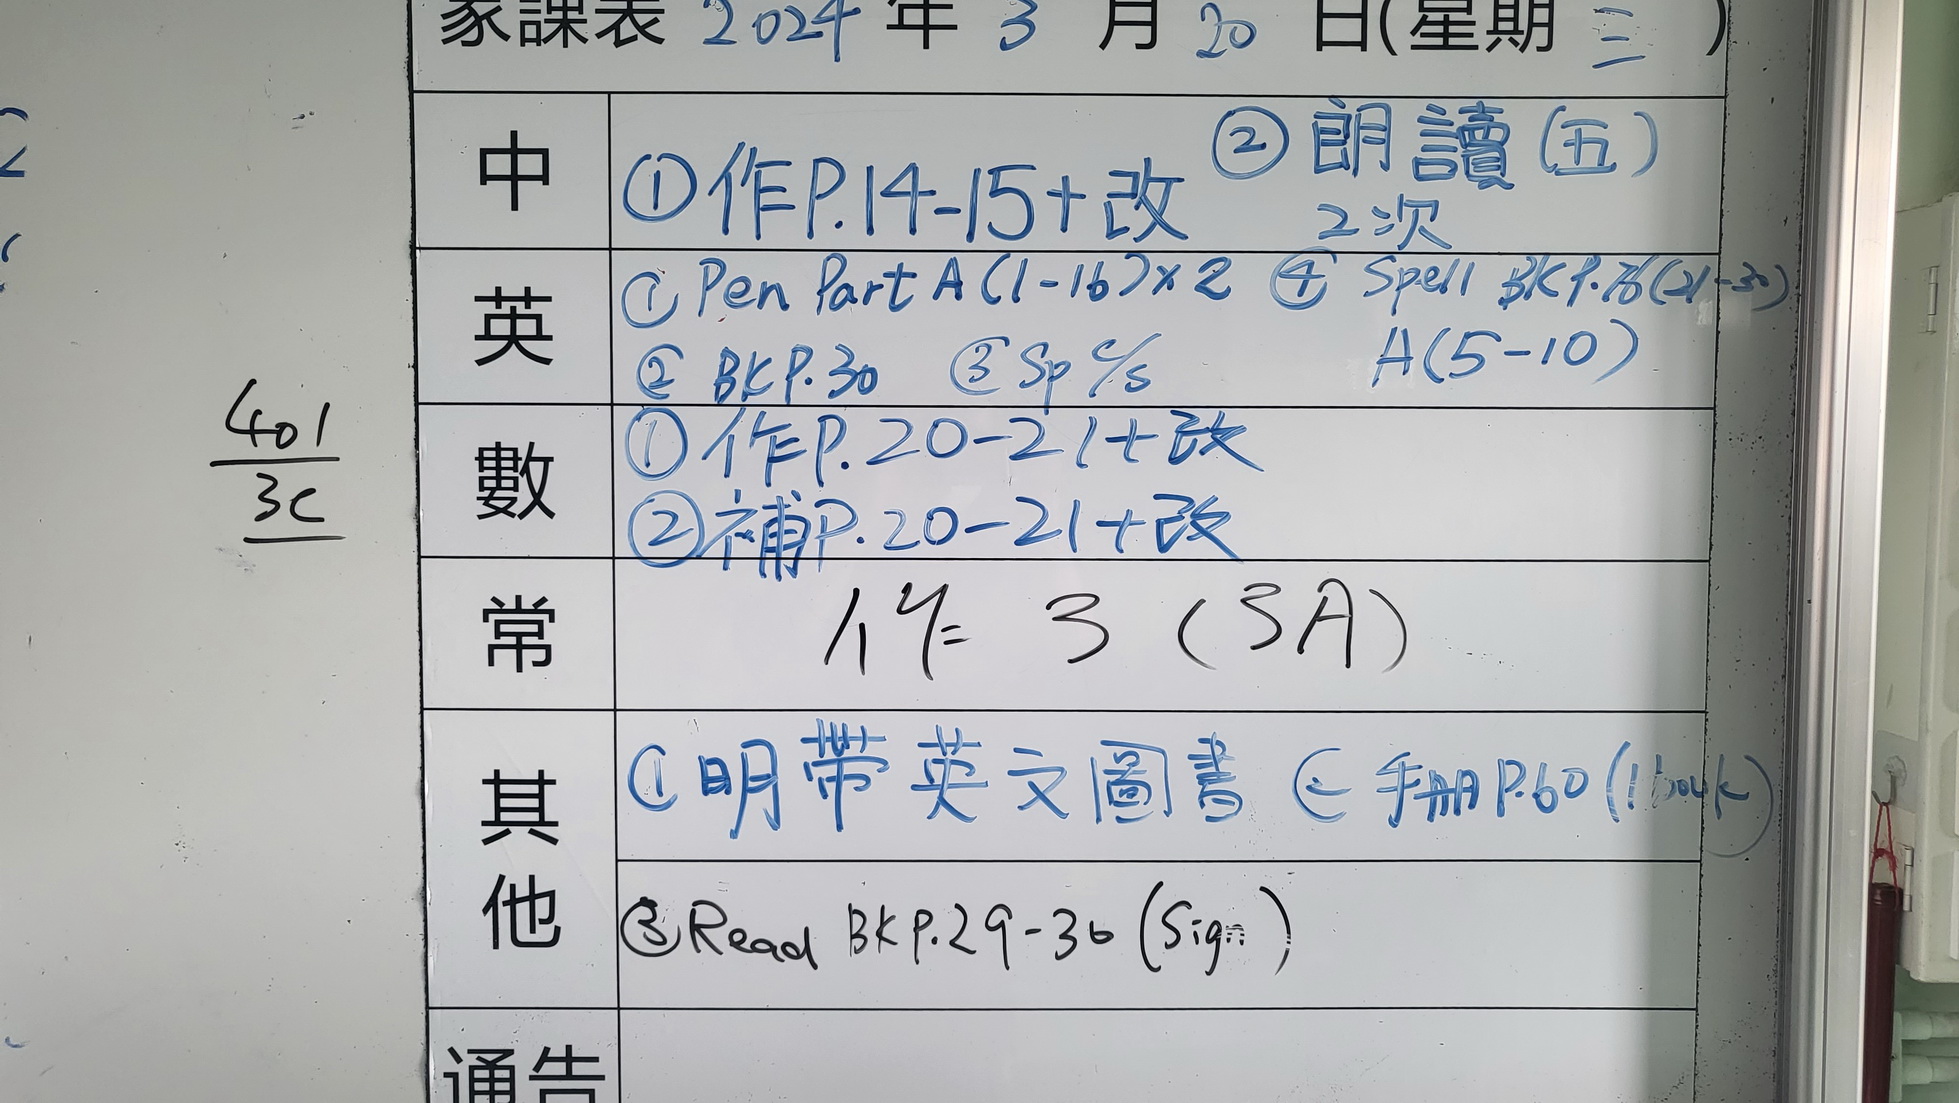 家課表 2024 年 3 月 20 日(星期 三 )
中
①作P.14-15+改 ②朗讀(五)
2次
英
① Pen Part A (1-16)×2 ④ Spell BK P.76(21-30)
② BK P.30 ③ Sp c/s A(5-10)
數
①作P.20-21+改
②補P.20-21+改
401
3C
常
作 3 (3A)
其他
①明帶英文圖書 ②手冊P.60 (1 book)
③Read BK P.29-30 (Sign)
通告